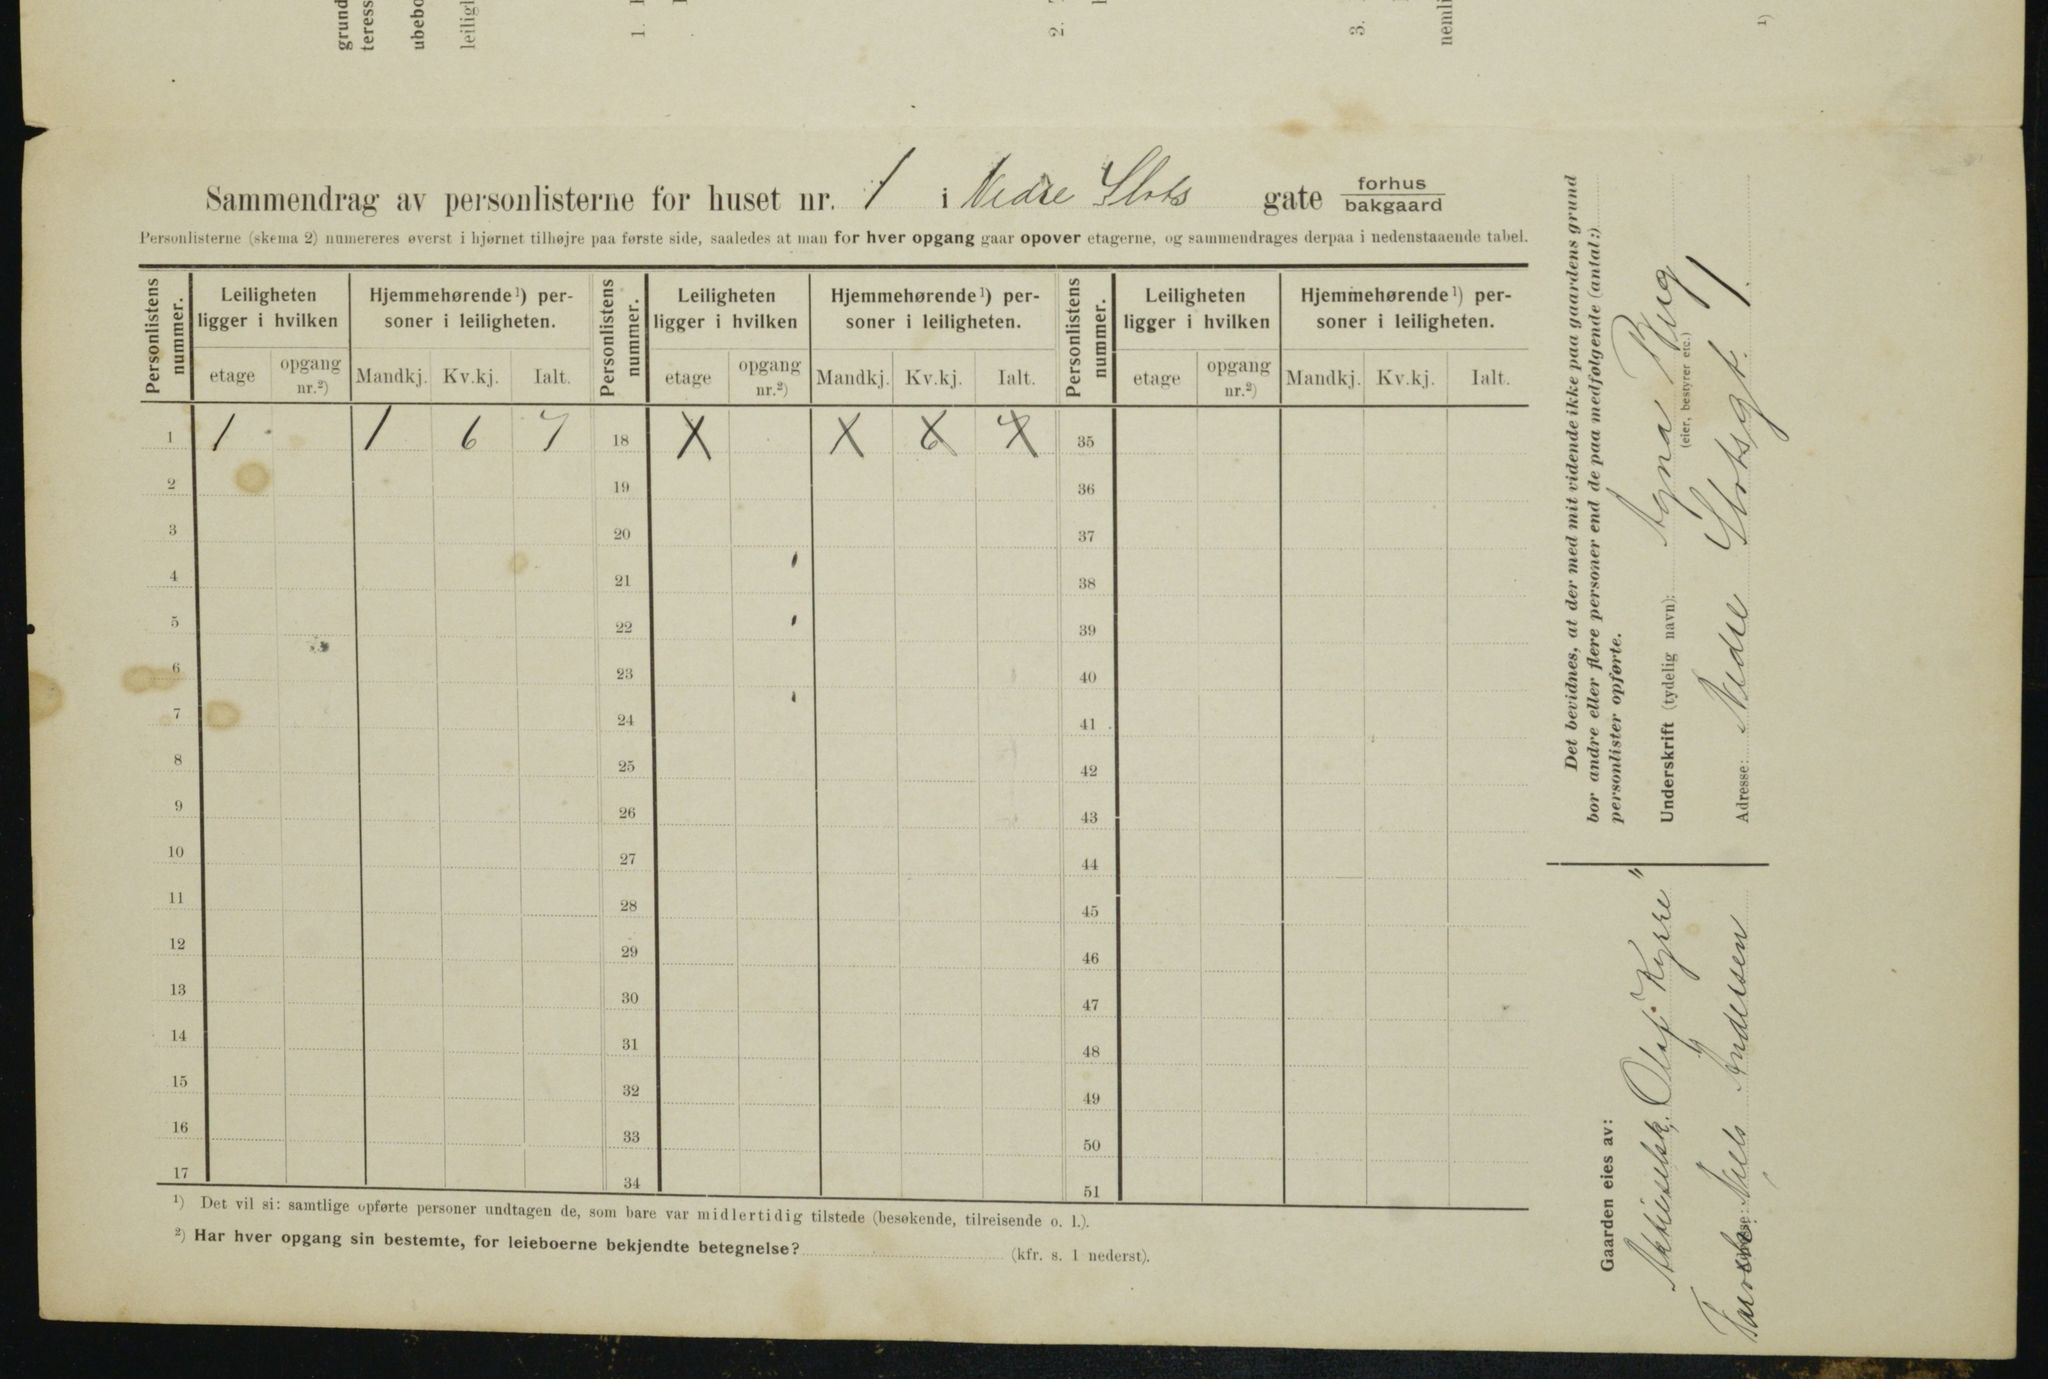 grund
teress
ubebo
leiligl
1.
2.
3.
nemli
1)
Sammendrag av personlisterne for huset nr. 1 i Nedre Slots gate forhus
bakgaard
Personlisterne (skema 2) numereres øverst i hjørnet tilhøjre paa første side, saaledes at man for hver opgang gaar opover etagerne, og sammendrages derpaa i nedenstaaende tabel.
Personlistens nummer. Leiligheten ligger i hvilken Hjemmehørende 1) personer i leiligheten. Personlistens nummer. Leiligheten ligger i hvilken Hjemmehørende 1) personer i leiligheten. Personlistens nummer. Leiligheten ligger i hvilken Hjemmehørende 1) personer i leiligheten.
etage opgang nr.2) Mandkj. Kv.kj. Ialt. etage opgang nr.2) Mandkj. Kv.kj. Ialt. etage opgang nr.2) Mandkj. Kv.kj. Ialt.
1 1 1 6 7 18 X X 6 7 35
2 19 36
3 20 37
4 21 38
5 22 39
6 23 40
7 24 41
8 25 42
9 26 43
10 27 44
11 28 45
12 29 46
13 30 47
14 31 48
15 32 49
16 33 50
17 34 51
1) Det vil si: samtlige opførte personer undtagen de, som bare var midlertidig tilstede (besøkende, tilreisende o. l.).
2) Har hver opgang sin bestemte, for leieboerne bekjendte betegnelse? (kfr. s. 1 nederst).
Det bevidnes, at der med mit vidende ikke paa gaardens grund
bor andre eller flere personer end de paa medfølgende (antal:)
personlister opførte.
Underskrift (tydelig navn): Agna Berg
(eier, bestyrer etc.)
Adresse: Nedre Slotsgt. 1.
Gaarden eies av:
Aktieselsk. Olaf Kyrre"
Niels Andersen